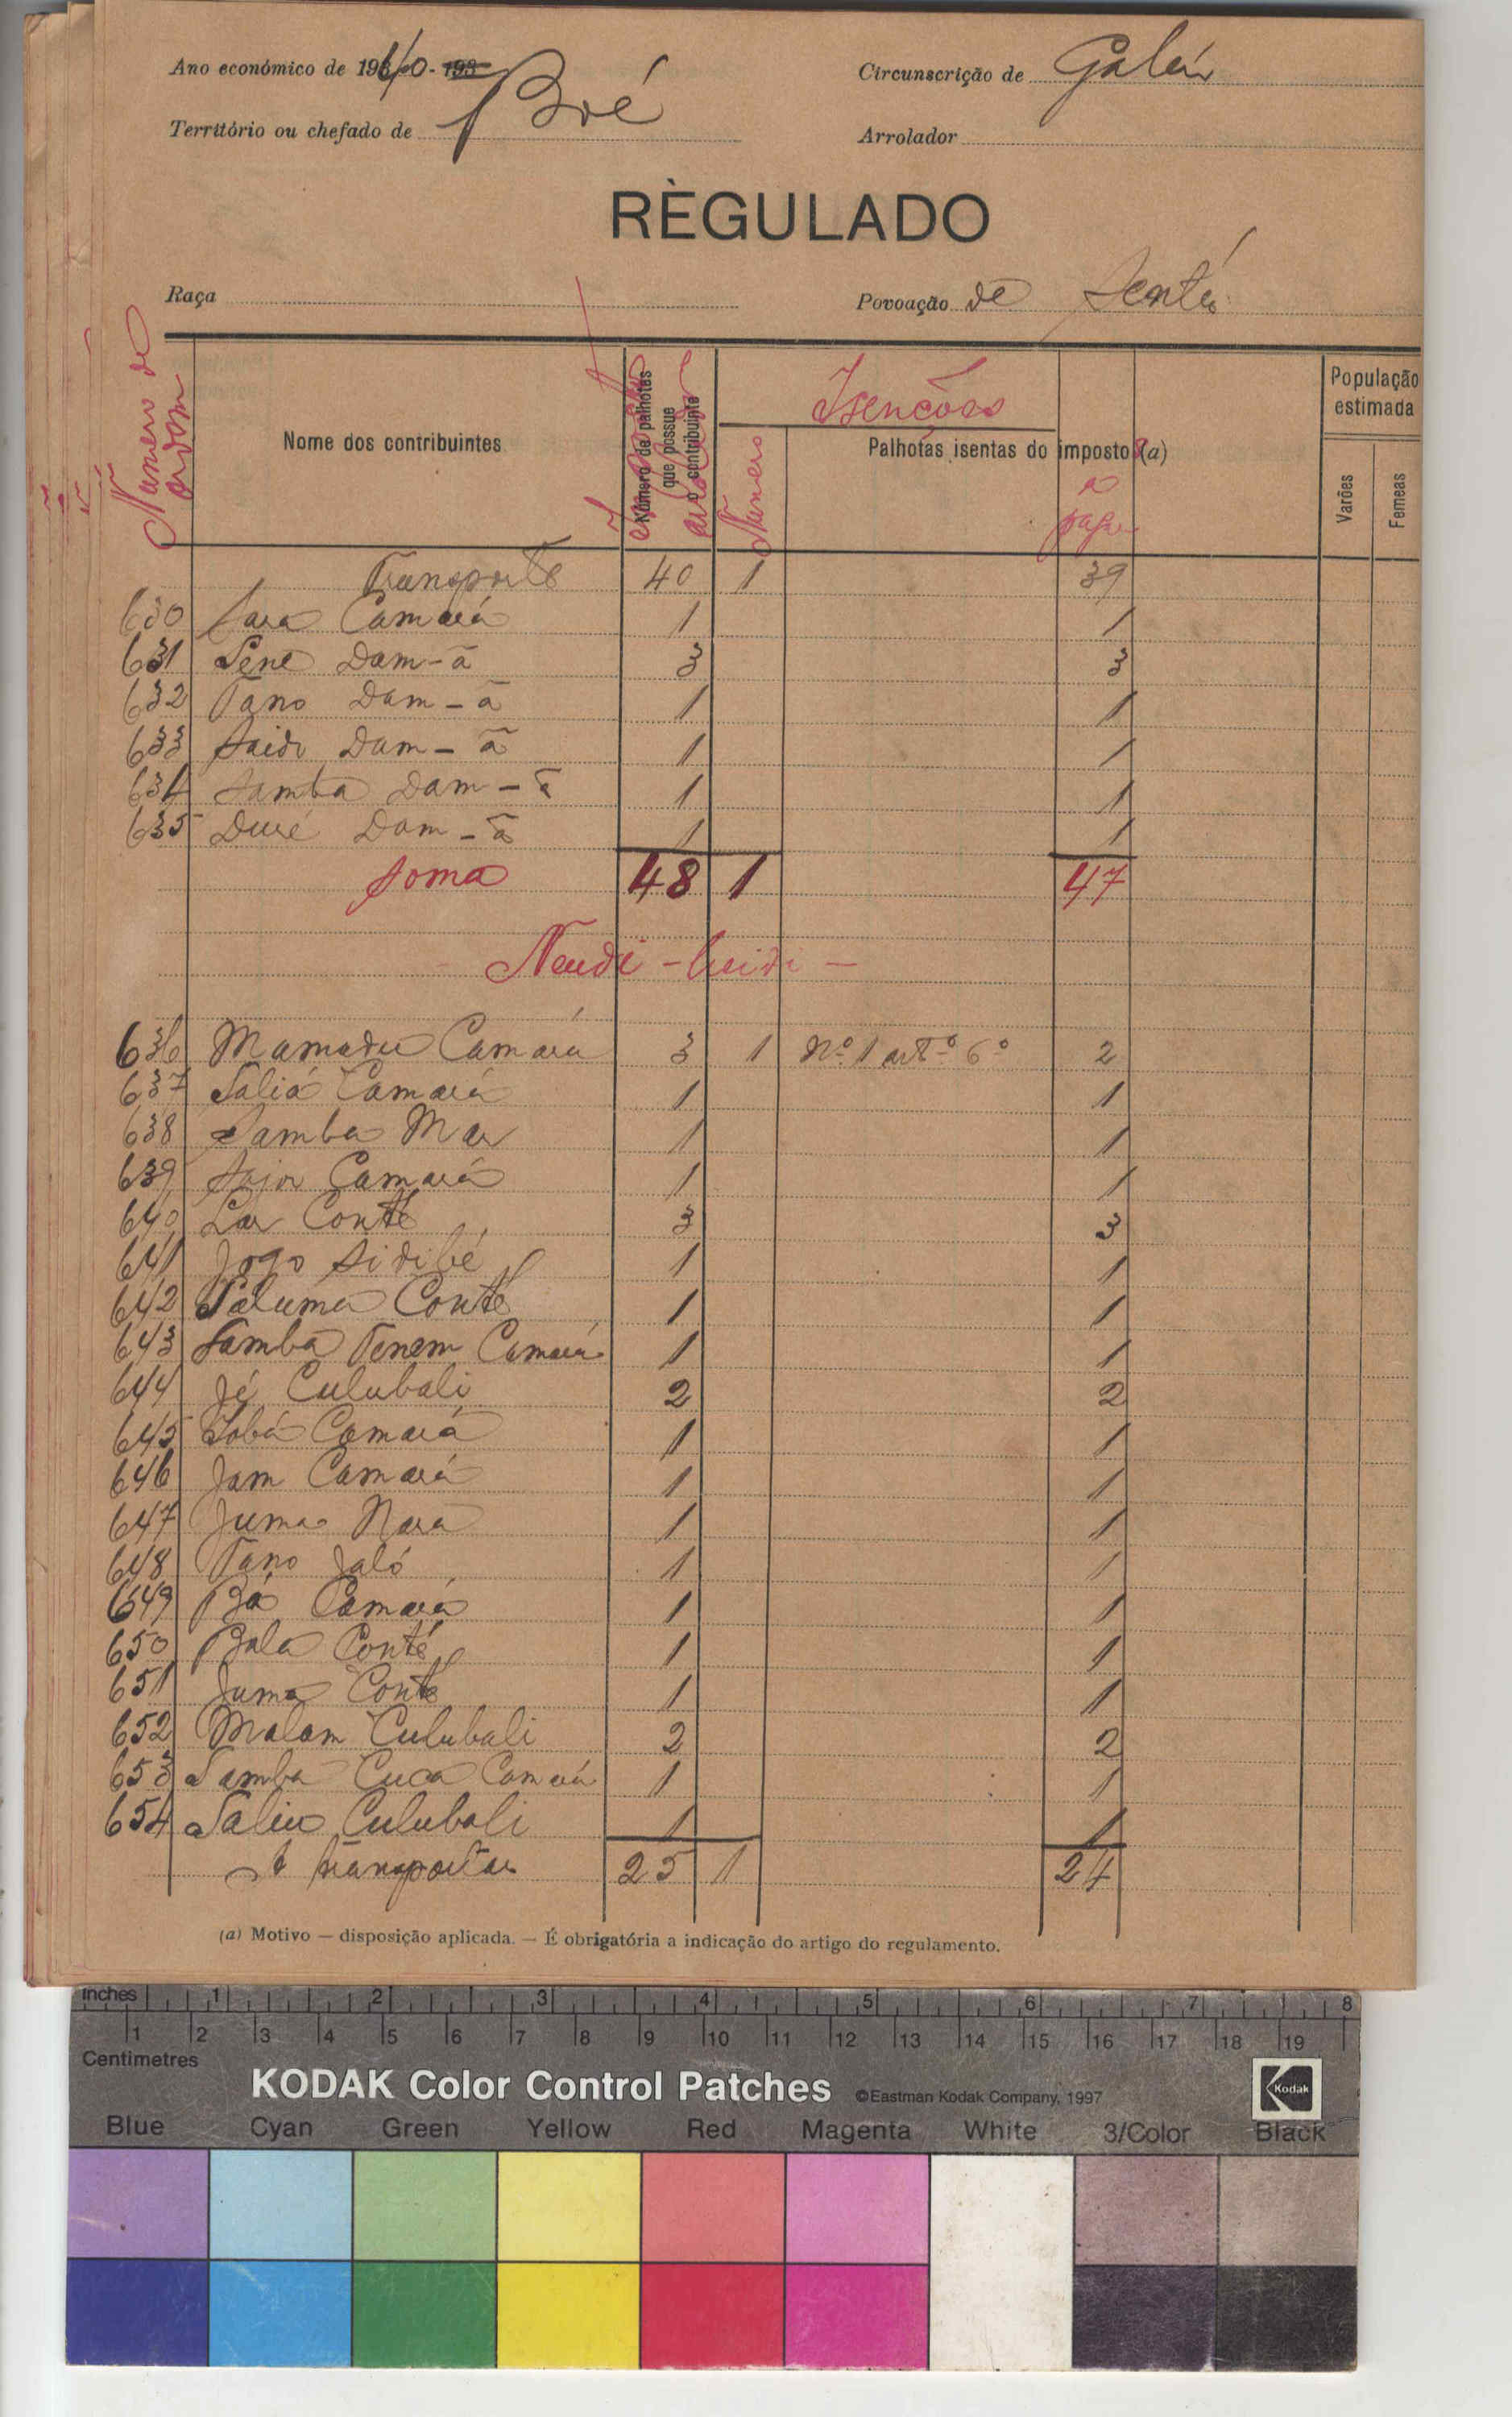 Ano económico de 1940 - 193
Circunscrição de Gabú
Território ou chefado de Boé
Arrolador
RÈGULADO
Raça
Povoação de Sentú
Número de ordem
Nome dos contribuintes
Número de palhotas que possue o contribuinte
Isenções
Número
Palhotas isentas do imposto (a)
a pagar
População estimada
Varões
Femeas
Transporte 40 1 39
630 Sara Camará 1 1
631 Sene Dam-ã 3 3
632 Tano Dam-ã 1 1
633 Saido Dam-ã 1 1
634 Samba Dam-ã 1 1
635 Duré Dam-ã 1 1
Soma 48 1 47
636 Mamadu Camará 3 1 nº 1 artº 6º 2
637 Saliá Camará 1 1
638 Samba Mar 1 1
639 Camará 1 1
640 Lar Conté 3 3
641 Jogo Sidibé 1 1
642 Saluma Conté 1 1
643 Samba Tenem Camará 1 1
644 Jé Culubali 2 2
645 Sobá Camará 1 1
646 Jam Camará 1 1
647 Juma Nara 1 1
648 Tano Jaló 1 1
649 Bá Camará 1 1
650 Bala Conté 1 1
651 Juma Conté 1 1
652 Malam Culubali 2 2
653 Samba Cuca Camará 1 1
654 Saliu Culubali 1 1
A transportar 25 1 24
(a) Motivo — disposição aplicada. — É obrigatória a indicação do artigo do regulamento.
Inches 1 2 3 4 5 6 7 8
1 2 3 4 5 6 7 8 9 10 11 12 13 14 15 16 17 18 19
Centimetres
KODAK Color Control Patches ©Eastman Kodak Company, 1997 Kodak
Blue Cyan Green Yellow Red Magenta White 3/Color Black